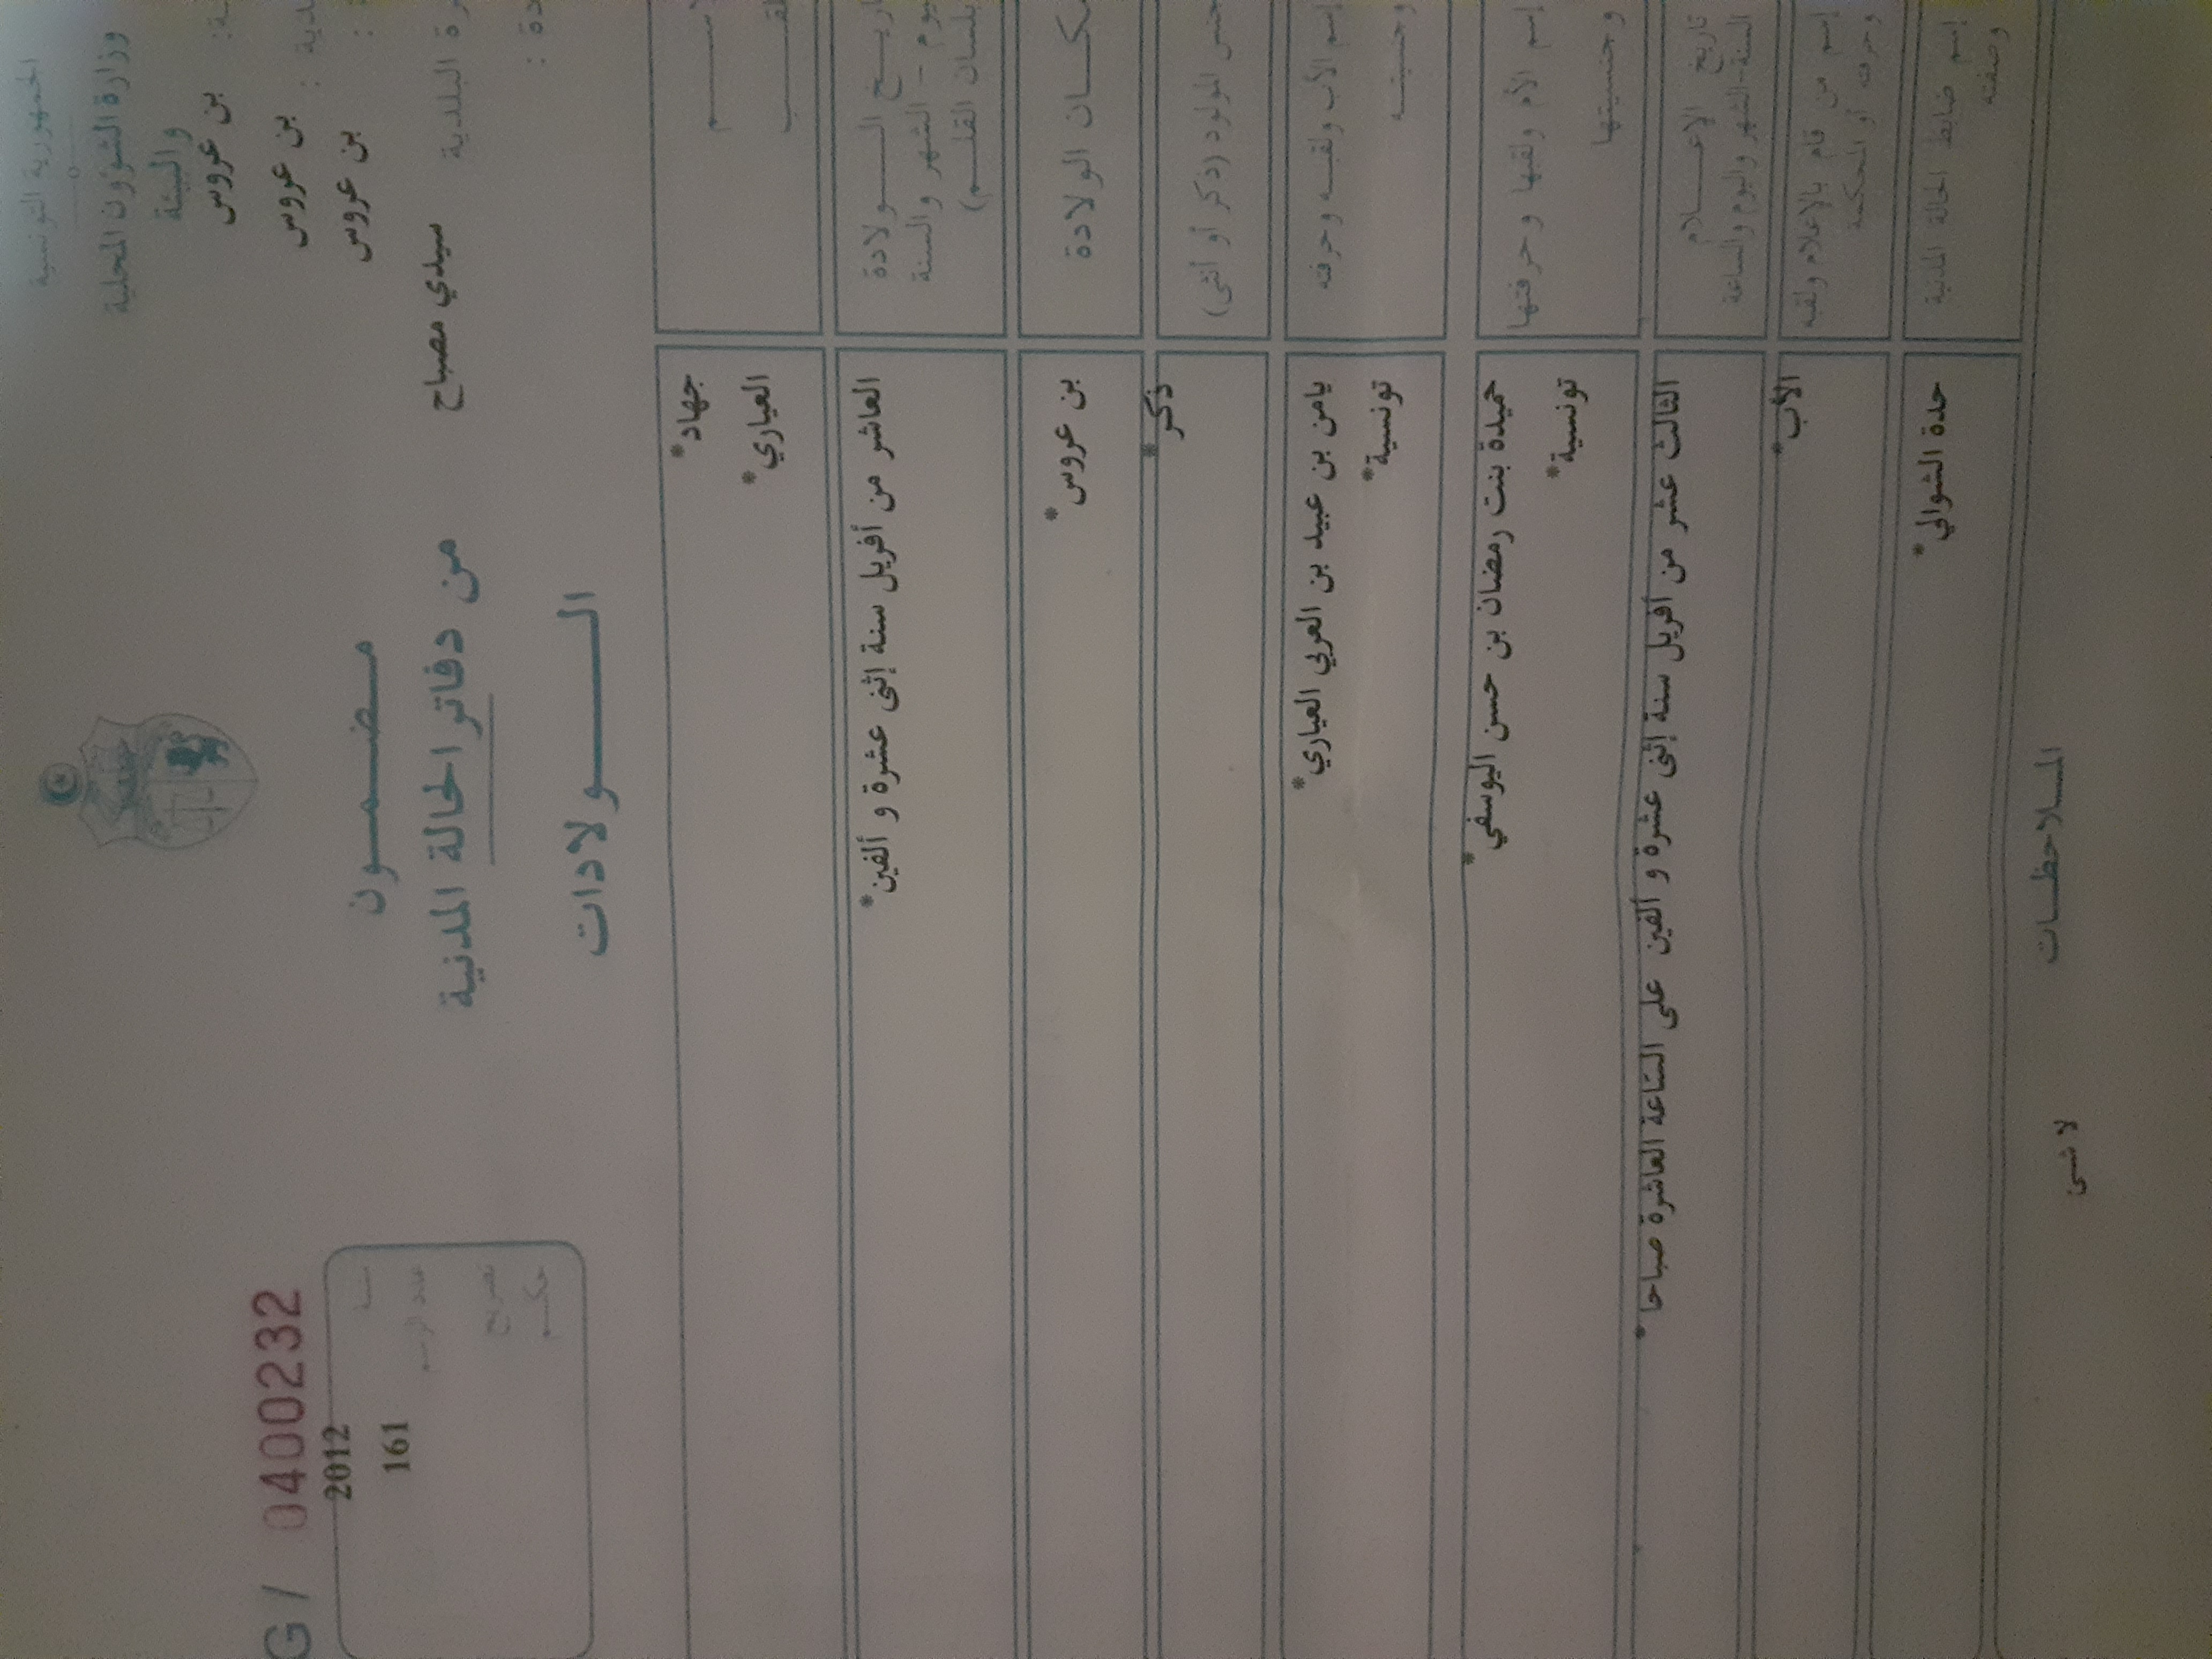 الجمهورية التونسية
وزارة الشؤون المحلية
والبيئة
بن عروس
بن عروس
بن عروس
البلدية سيدي مصباح
G / 0400232
سنة 2012
عدد الرسم 161
تصريح
حكم
مضمون
من دفاتر الحالة المدنية
الولادات
جهاد*
العياري*
الولادة العاشر من أفريل سنة إثنى عشرة و ألفين*
الشهر والسنة
بلسان القلم)
مكان الولادة بن عروس*
جنس المولود (ذكر أو أنثى) ذكر*
إسم الأب ولقبه وحرفته يامن بن عبيد بن العربي العياري*
وجنسيته تونسية*
إسم الأم ولقبها وحرفتها حميدة بنت رمضان بن حسن اليوسفي*
وجنسيتها تونسية*
تاريخ الإعلام الثالث عشر من أفريل سنة إثنى عشرة و ألفين على الساعة العاشرة صباحا*
السنة-الشهر واليوم والساعة
إسم من قام بالإعلام ولقبه الأب*
وحرفته أو المحكمة
إسم ضابط الحالة المدنية حدة الشوالي*
وصفته
الملاحظات
لا شئ